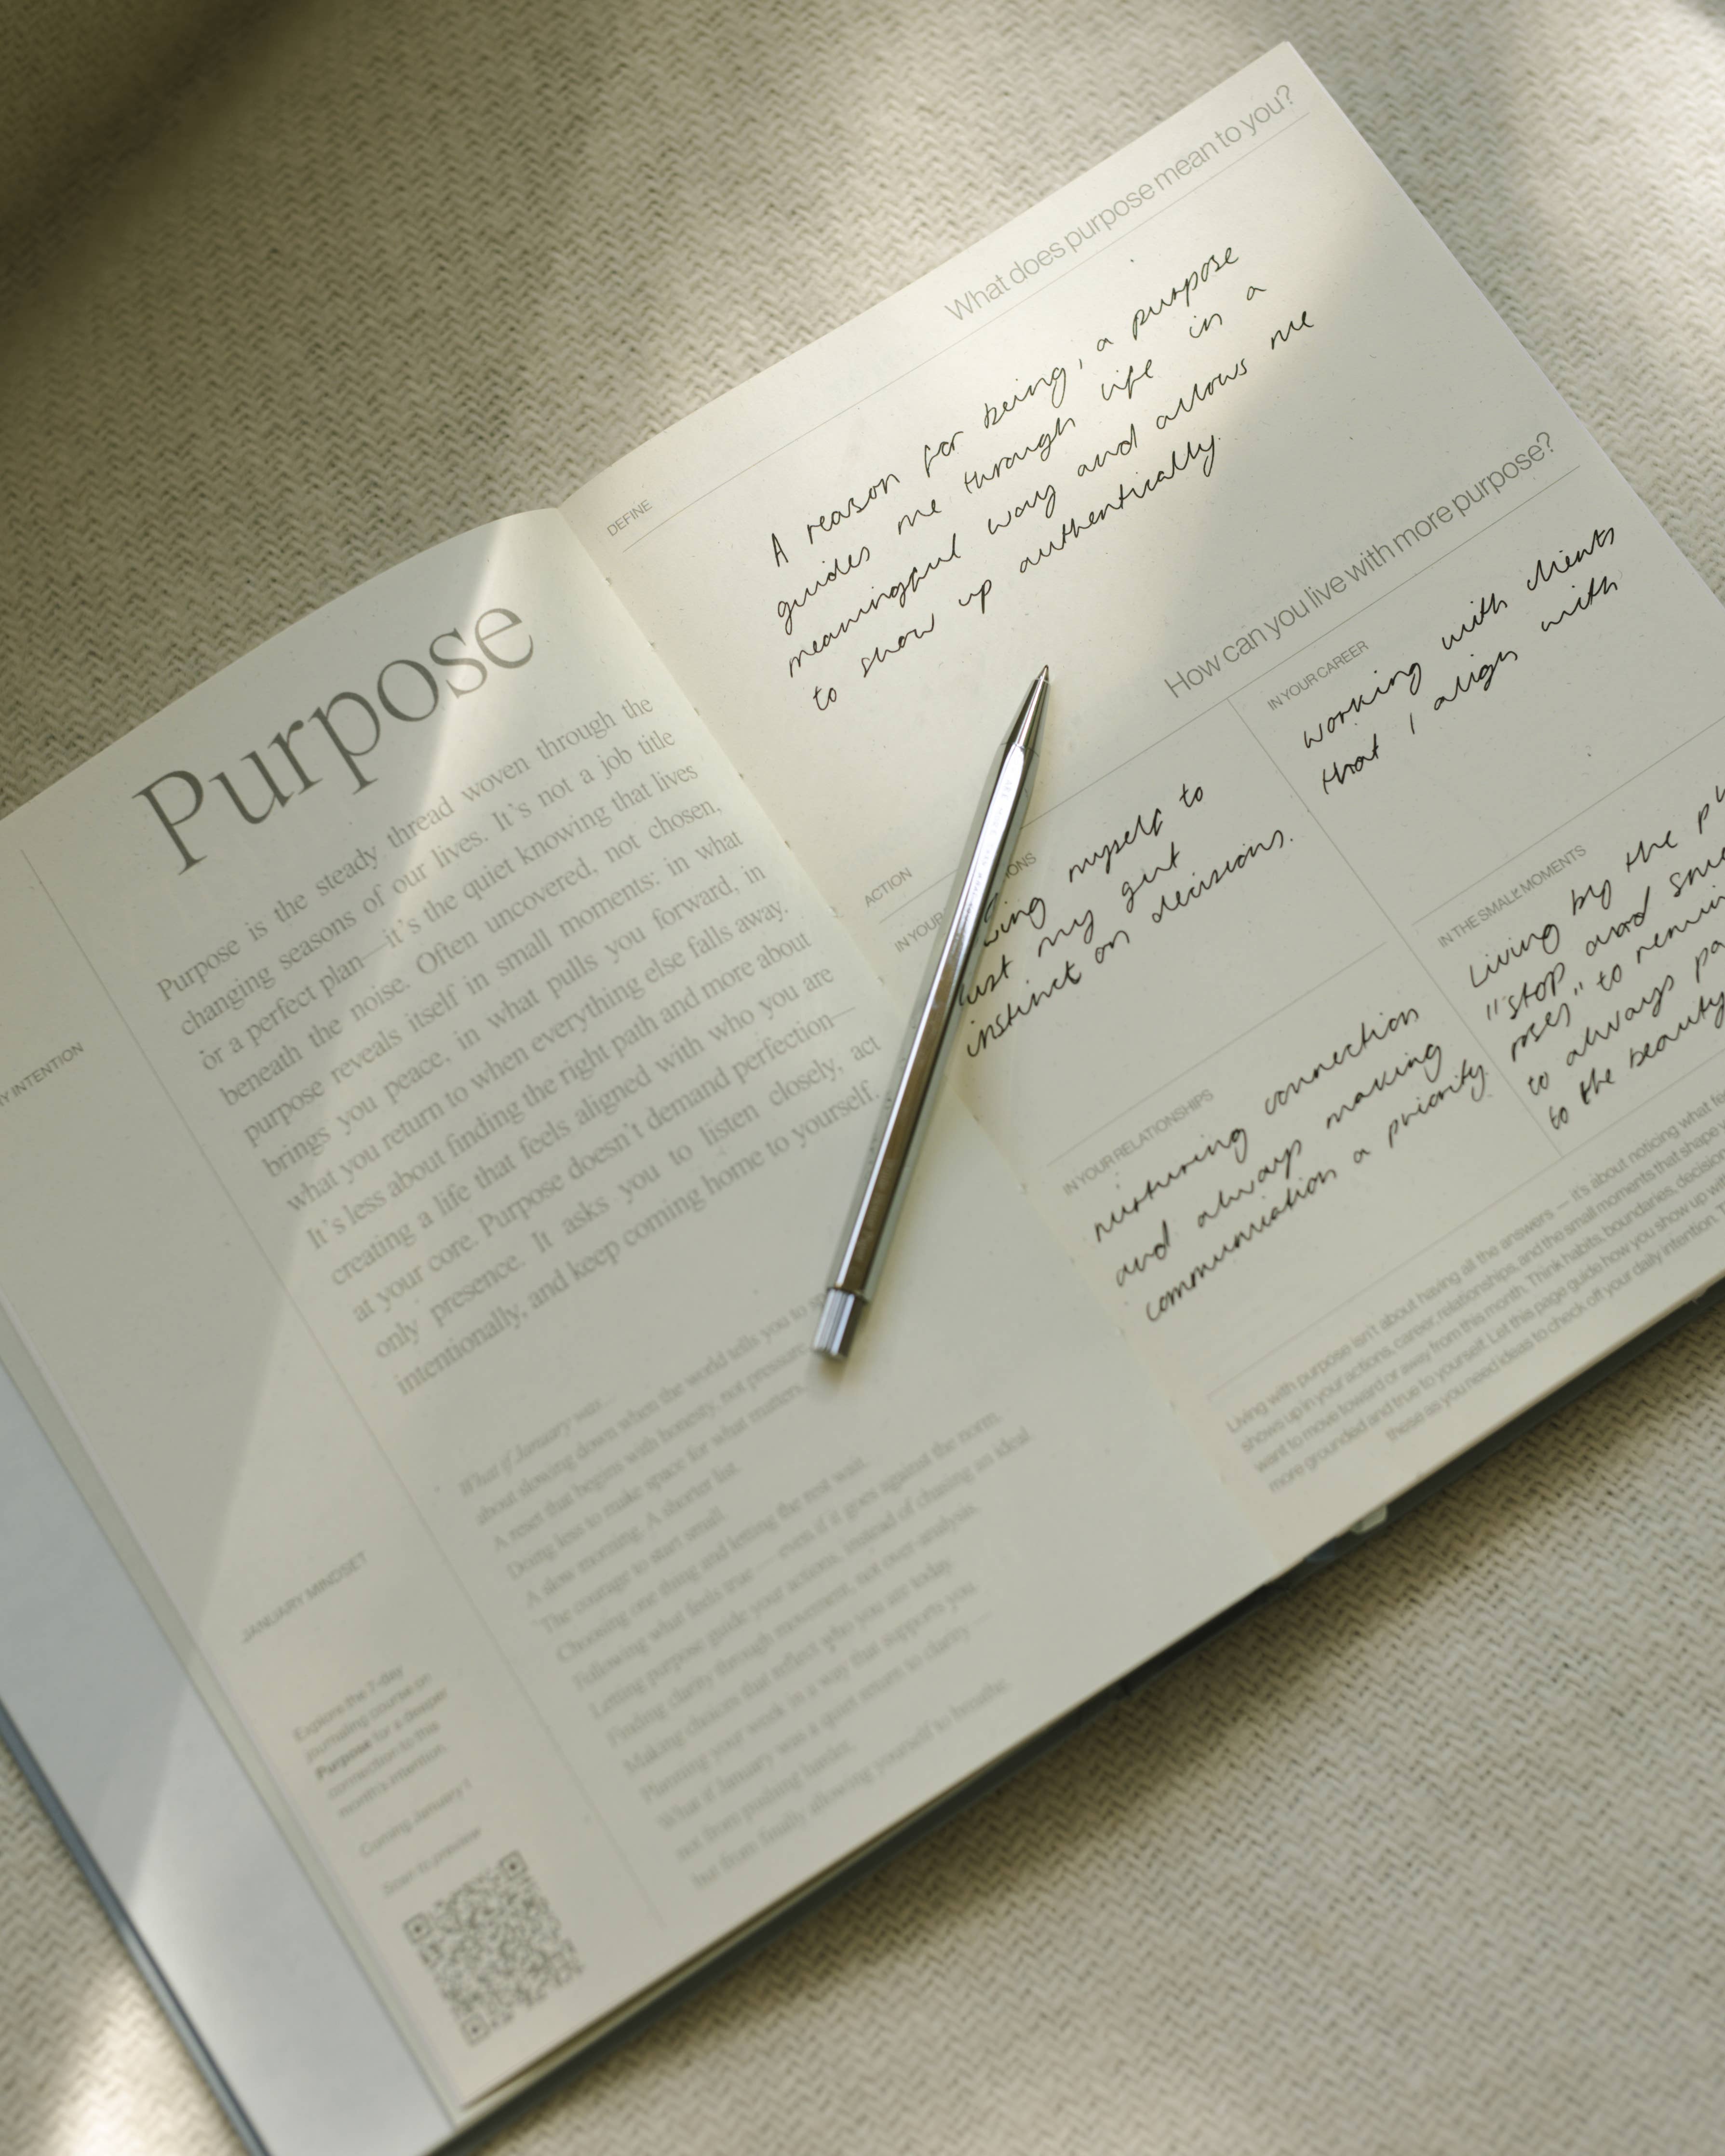 Purpose
Purpose is the steady thread woven through the
changing seasons of our lives. It’s not a job title
or a perfect plan—it’s the quiet knowing that lives
beneath the noise. Often uncovered, not chosen,
purpose reveals itself in small moments: in what
brings you peace, in what pulls you forward, in
what you return to when everything else falls away.
It’s less about finding the right path and more about
creating a life that feels aligned with who you are
at your core. Purpose doesn’t demand perfection—
only presence. It asks you to listen closely, act
intentionally, and keep coming home to yourself.
INTENTION
What if January was...
about slowing down when the world tells you to
A reset that begins with honesty, not pressure.
Doing less to make space for what matters.
A slow morning. A shorter list.
The courage to start small.
Choosing one thing and letting the rest wait.
Following what feels true — even if it goes against the norm.
Letting purpose guide your actions, instead of chasing an ideal.
Finding clarity through movement, not over-analysis.
Making choices that reflect who you are today.
Planning your week in a way that supports you.
What if January was a quiet return to clarity —
not from pushing harder,
but from finally allowing yourself to breathe.
JANUARY MINDSET
Explore the 7-day
journaling course on
Purpose for a deeper
connection to this
month's intention.
Coming January 1
Scan to preview
What does purpose mean to you?
DEFINE
A reason for being, a purpose
guides me through life in a
meaningful way and allows me
to show up authentically.
How can you live with more purpose?
ACTION
IN YOUR
myself to
my gut
instinct on decisions.
IN YOUR CAREER
working with clients
that I align with
IN YOUR RELATIONSHIPS
nurturing connection
and always making
communication a priority.
IN THE SMALL MOMENTS
Living by the
"stop and
roses" to
to always
to the beauty
Living with purpose isn't about having all the answers — it's about noticing what
shows up in your actions, career, relationships, and the small moments that shape
want to move toward or away from this month. Think habits, boundaries,
more grounded and true to yourself. Let this page guide how you show up
these as you need ideas to check off your daily intention.